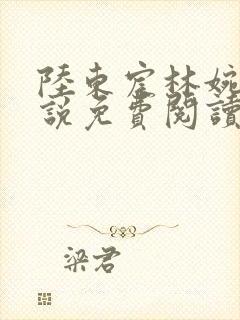 陸東宧林婉
說免費閱讀
梁君